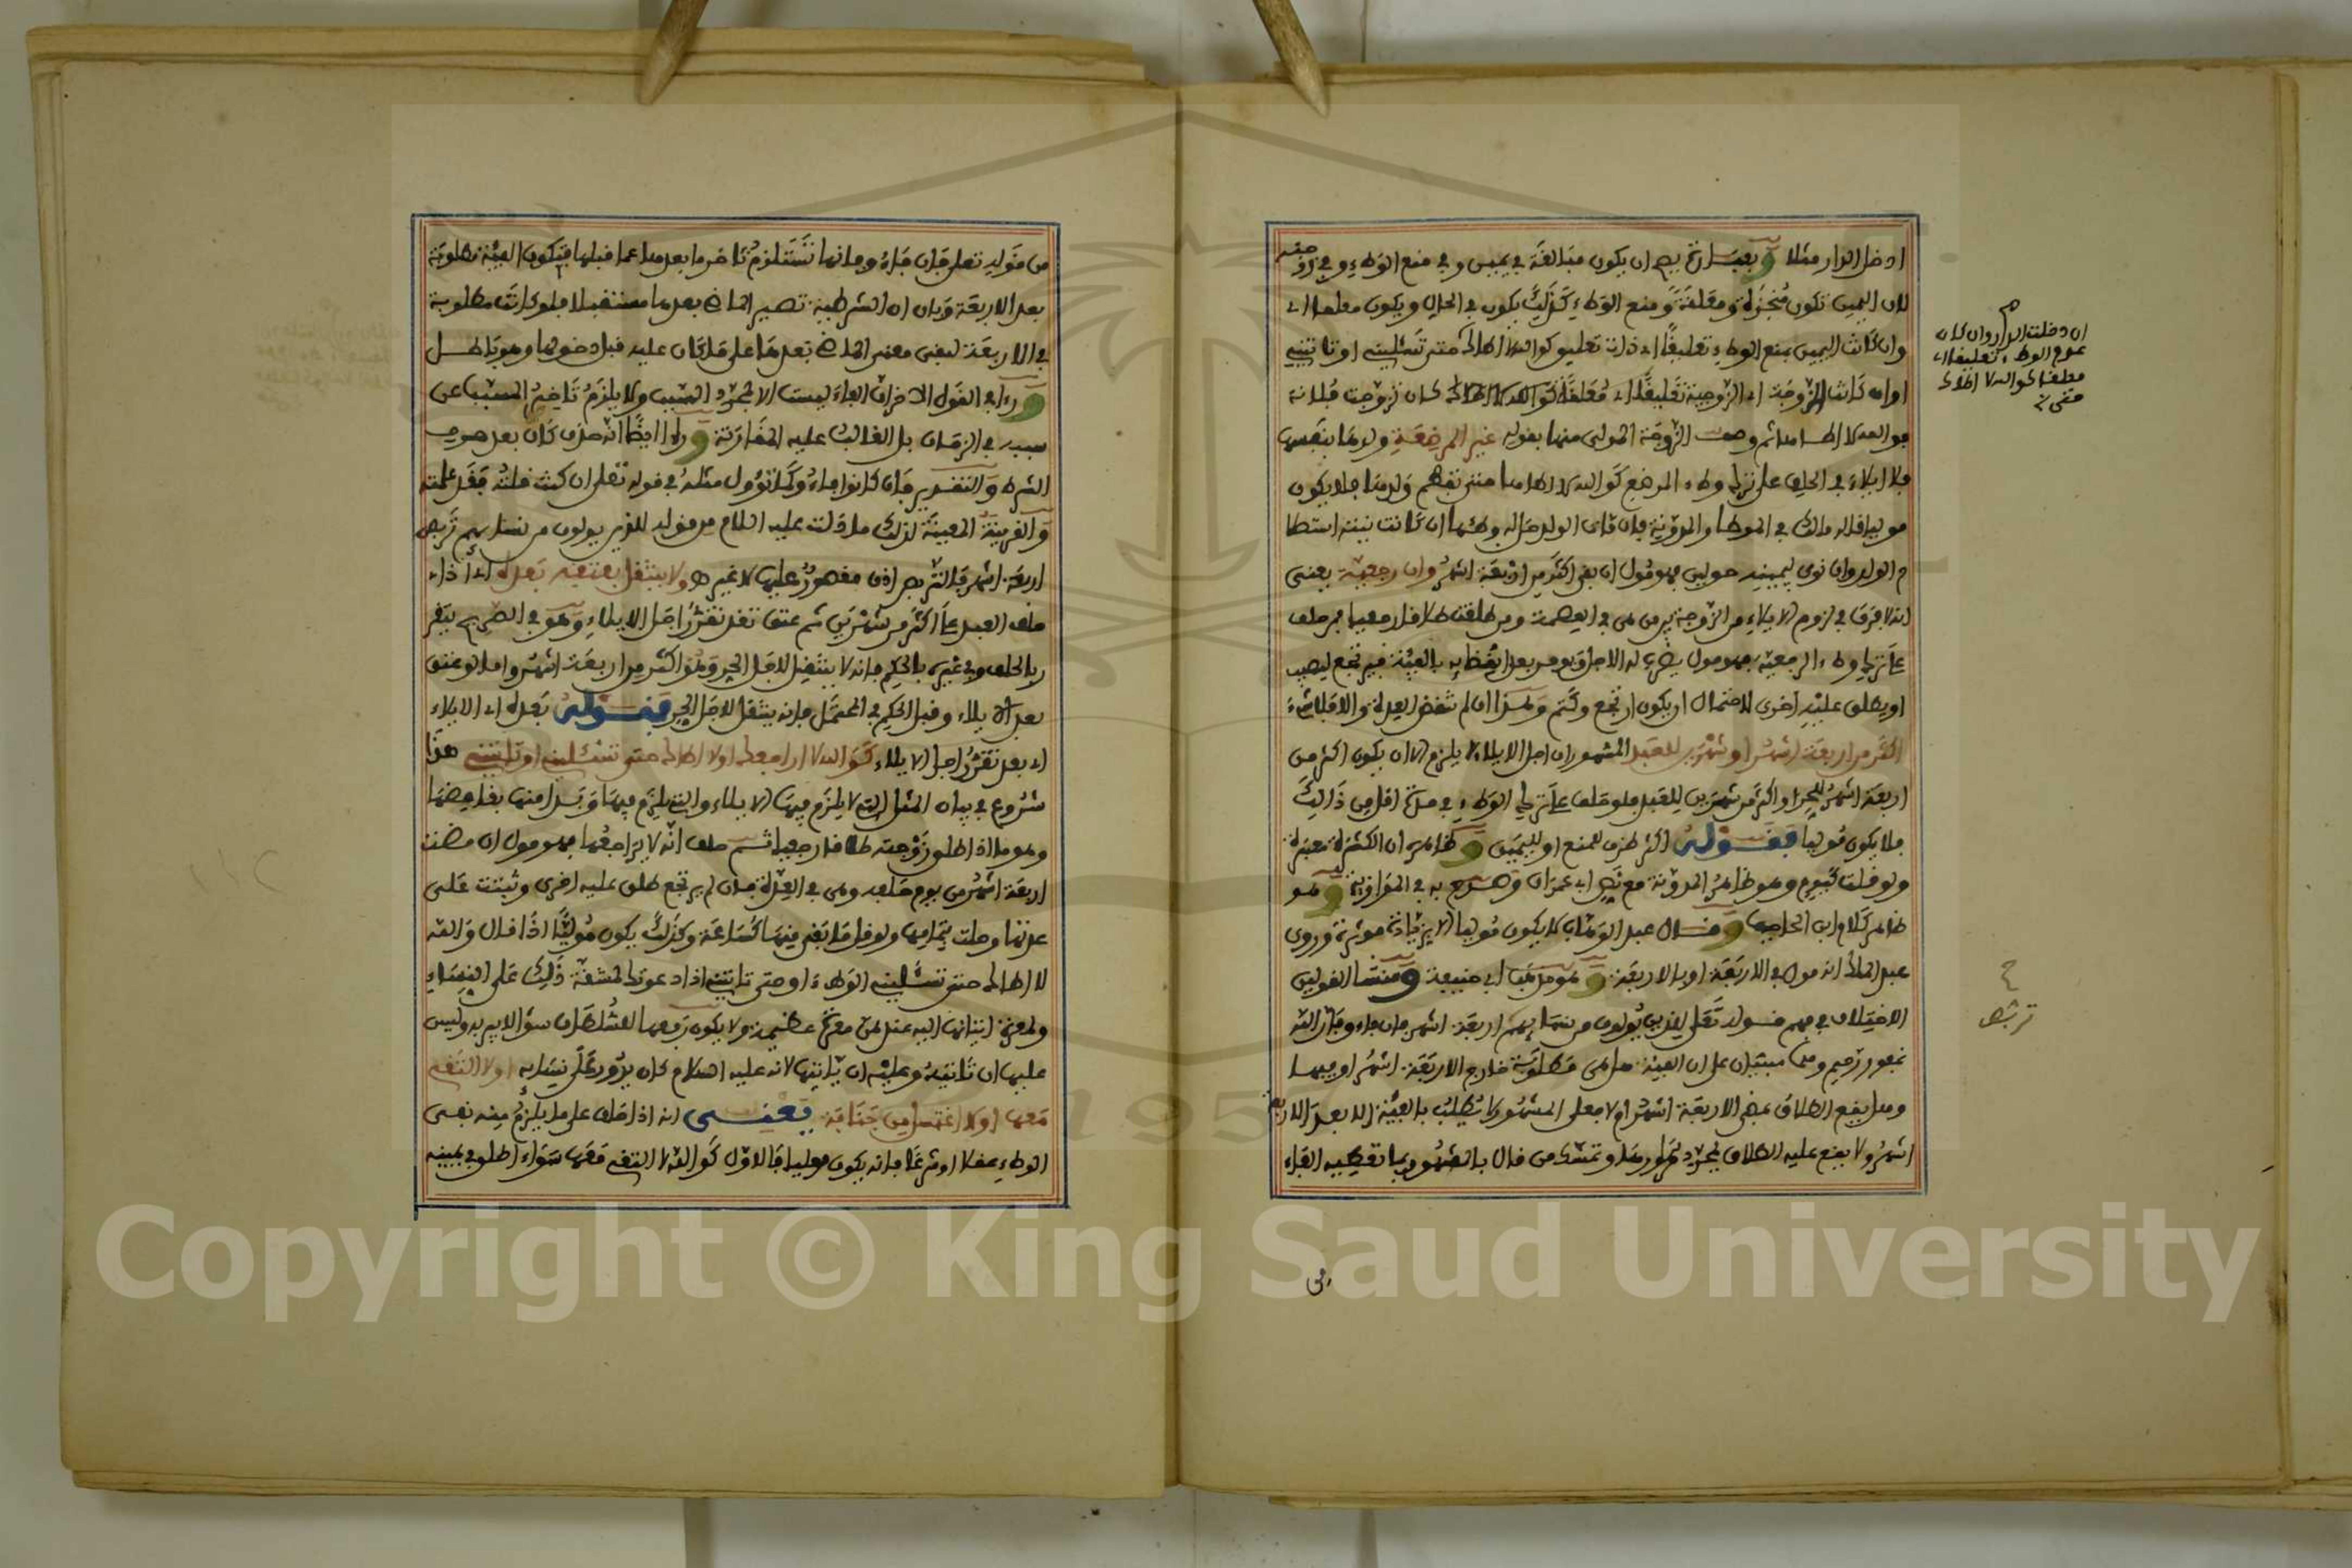 ادخل الدار مثلا وبعبارة يصح ان يكون مبالغة في يمين وفي منع الوطء وفي زوجته
لان اليمين تكون منجزة ومعلقة ومنع الوطء كذلك يكون في الحال ويكون معلقا اي
وان كانت اليمين بمنع الوطء تعليقا اي ذات تعليق كوالله لا اطاك حتى تسئليني او تاتيني
او ان كانت الزوجة اي الزوجية تعليقا اي معلقة كوالله لا اطاك كان تزوجت فلانة
فوالله لا اطاها ثم وصف الزوجة المولى منها بقوله غير المرضعة ولدها بنفسها
فلا ايلاء في الحلف على ترك وطء المرضع كوالله لا اطاها حتى تفطم ولدها فلا يكون
موليا قاله مالك في الموطا والمدونة فان مات الولد حل له وطئها ان كانت نيته استطا
م الولد وان نوى ليمينه حولين فهو مول ان بقي اكثر من اربعة اشهر وان رجعية يعني
انه لا فرق في لزوم الايلاء من الزوجة بين من هي في العصمة ومن طلقت طلاقا رجعيا فمن حلف
على ترك وطء الرجعية فهو مول يضرب له الاجل ويومر بعد انقضايه بالفيئة فيرتجع ليصيب
او يطلق عليه اخرى لاحتمال ان يكون ارتجع وكتم وهذا ان لم تنقض العدة والا فلا شيء
اكثر من اربعة اشهر او شهرين للعبد المشهور ان اجل الايلاء لا يلزم الا ان يكون اكثر من
اربعة اشهر للحر او اكثر من شهرين للعبد فلو حلف على ترك الوطء في مدة اقل من ذالك
فلا يكون موليا فقوله اكثر ظرف للمنع او لليمين وظاهره ان الكثرة معتبرة
ولو قلت كيوم وهو ظاهر المدونة مع نص ابي عمران وصرح به في الجواهر وهو
ظاهر كلام ابن الحاجب وقال عبد الوهاب لا يكون موليا الا بزيادة موثرة وروى
عبد الملك انه مول في الاربعة او بالاربعة وهو مذهب ابي حنيفة ومنشا القولين
الاختلاف في فهم قوله تعلى للذين يولون من نسايهم تربص اربعة اشهر فان فاءو فان الله
غفور رحيم وهما مبنيان على ان الفيئة هل هي مطلوبة خارج الاربعة اشهر او فيها
وهل يقع الطلاق بمضي الاربعة اشهر ام لا فعلى المشهور لا يطلب بالفيئة الا بعد الاربعة
اشهر ولا يقع عليه الطلاق بمجرد مرورها وتمسك من قال بالمشهور بما تعطيه الفاء
ان دخلت الدار وان كان
منع الوطء تعليقا اي
معلقا كوالله لا اطاك
حتى
تربص
من
من قوله تعلى فان فاءو فانها تستلزم تاخر ما بعدها عما قبلها فتكون الفيئة مطلوبة
بعد الاربعة وبان ان الشرطية تصير الماضي بعدها مستقبلا فلو كانت مطلوبة
في الاربعة لبقي معنى الماضي بعدها على ما كان عليه قبل دخولها وهو باطل
وراى القول الاخر ان الفاء ليست الا لمجرد السبب ولا يلزم تاخير المسبب عن
سببه في الزمان بل الغالب عليه المقارنة وراوا ايضا انه حذف كان بعد حرف
الشرط والتقدير فان كانوا فاءو كما تؤول مثله في قوله تعلى ان كنت قلته فقد علمته
والقرينة المعينة لذلك ما دلت عليه اللام من قوله للذين يولون من نسايهم تربص
اربعة اشهر فالتربص اذن مقصور عليها لا غير ص ولا ينتقل بعتقه بعده اي اذا
حلف العبد على اكثر من شهرين ثم عتق بعد تقرر اجل الايلاء وهو في الصريح بنفس
الحلف وفي غيره بالحكم فانه لا ينتقل لاجل الحر وهو اكثر من اربعة اشهر واما لو عتق
بعد الايلاء وقبل الحكم في المحتمل فانه ينتقل لاجل الحر فقوله بعده اي الايلاء
اي بعد تقرر اجل الايلاء كوالله لا اراجعك او لا اطاك حتى تسئليني او تاتيني هذا
شروع في بيان المثل التي لا يلزم فيها الايلاء والتي يلزم فيها وبدا منها بما يلزمها
وهو ما اذا طلق زوجته طلاقا رجعيا ثم حلف انه لا يراجعها فهو مول ان مضت
اربعة اشهر من يوم حلفه وهي في العدة فان لم يرتجع طلق عليه اخرى وبنت على
عدتها وحلت بتمامها ولو قل ما بقي منها كساعة وكذلك يكون موليا اذا قال والله
لا اطاك حتى تسئليني الوطء او حتى تاتيني اذا دعوتك لمشقة ذلك على النساء
ولمعرة اتيانها اليه عند اهلها معرة عظيمة ولا يكون رفعها للسلطان سؤالا يبر به وليس
عليها ان تاتيه وعليه ان ياتيها لانه عليه السلام كان يدور على نسايه او لا التقي
معها او لا اغتسل من جنابة يعني انه اذا حلف على ما يلزم منه نفي
الوطء عقلا او شرعا فانه يكون موليا فالاول كوالله لا التقي معها سواء اطلق في يمينه